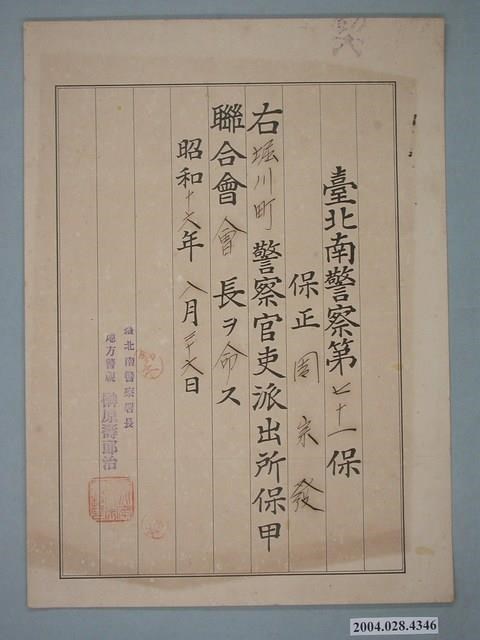 臺北南警察第七十一保
保正 周宗發
右堀川町警察官吏派出所保甲
聯合會會長ヲ命ス
昭和十六年八月三十六日
臺北南警察署長
地方警視 榊原壽郎治
2004.028.4346